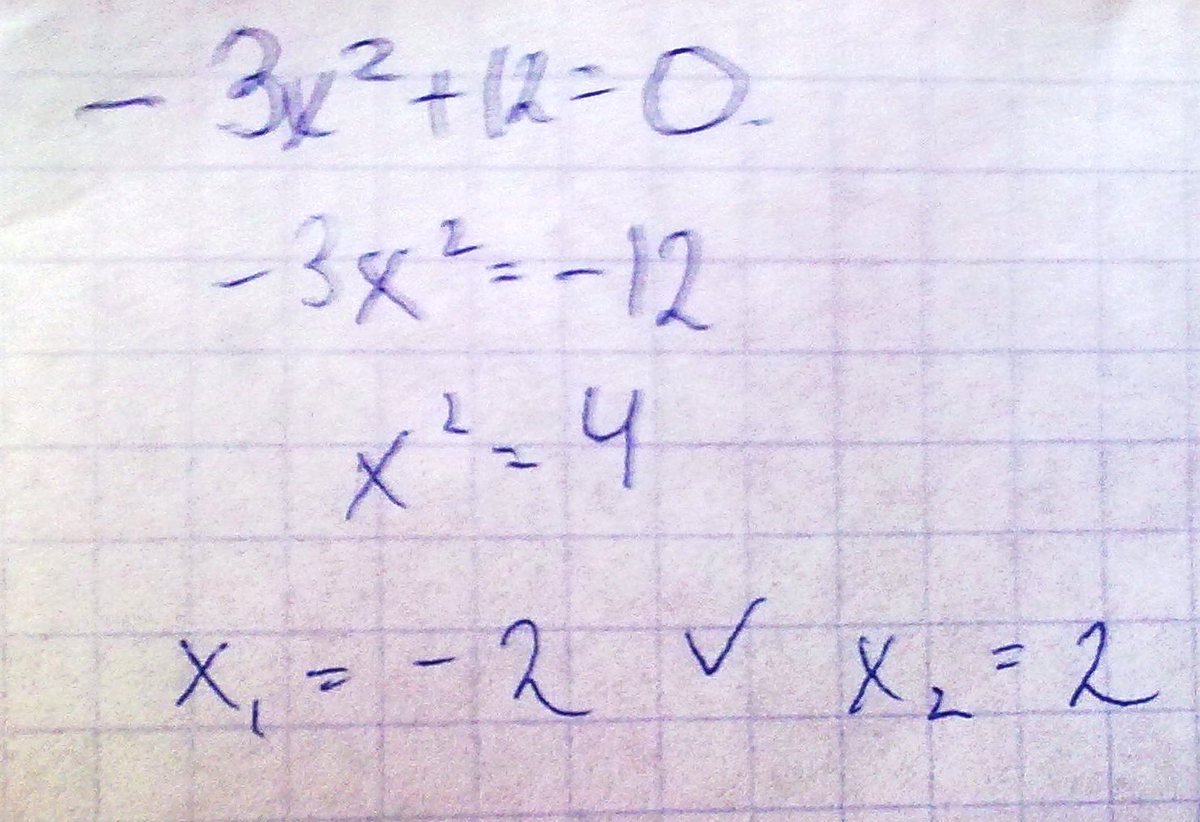 - 3x² + 12 = 0.
-3x² = -12
x² = 4
x₁ = -2 ∨ x₂ = 2